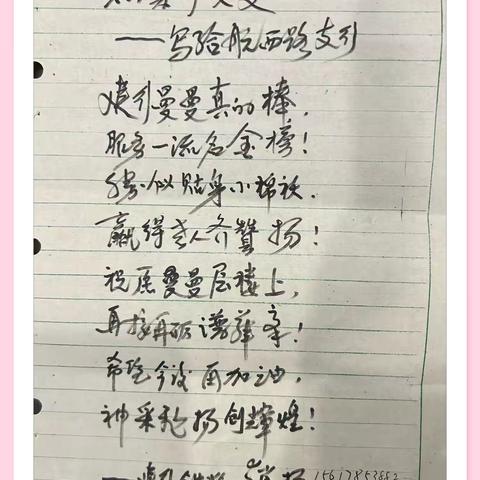 ——写给航西路支行
曼曼真的棒，
服务一流名金榜！
胜似贴身小棉袄，
赢得老人齐赞扬！
祝愿曼曼层楼上，
再接再砺谱华章！
希望今后再加油，
神采飞扬创辉煌！